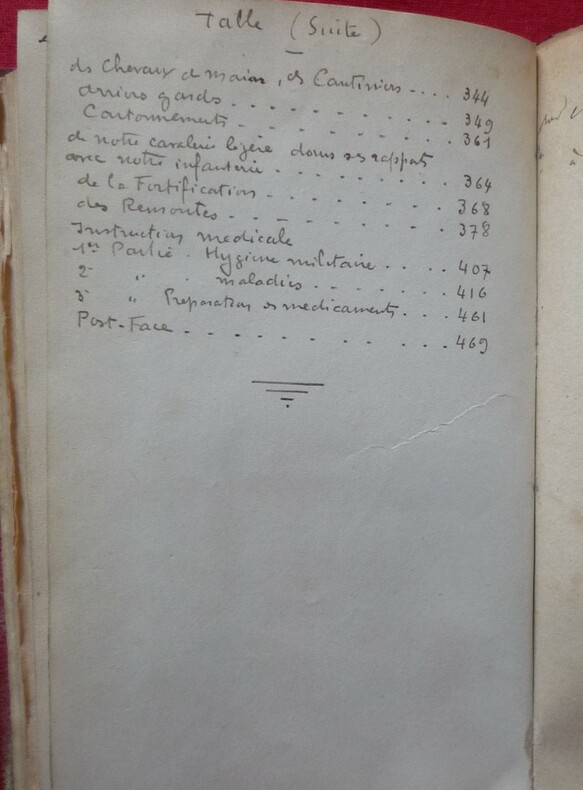 Table (Suite)
des Chevaux de main, des Cantiniers .... 344
arrière gardes . . . . . . . . . 349
Cantonnements . . . . . . . . . 361
de notre cavalerie légère dans ses rapports
avec notre infanterie . . . . . . . . 364
de la Fortification . . . . . . . . 368
des Remontes . . . . . . . . . 378
Instruction médicale
1ère Partie . Hygiène militaire . . . . 407
2e " . maladies . . . . . . 416
3e " Préparation des médicaments . . . 461
Post-Face . . . . . . . . . . 469